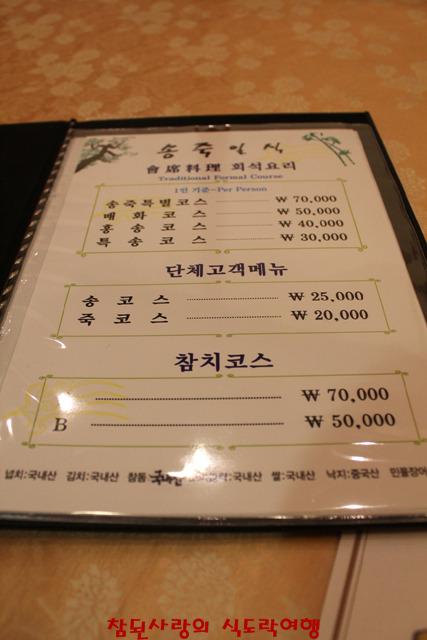 송죽일식
會席料理 회석요리
Traditional Formal Course
1인 기준-Per Person
송죽특별코스 ₩ 70,000
매화코스 ₩ 50,000
홍송코스 ₩ 40,000
특송코스 ₩ 30,000
단체고객메뉴
송코스 ₩ 25,000
죽코스 ₩ 20,000
참치코스
₩ 70,000
B ₩ 50,000
넙치:국내산 김치:국내산 참돔 국내산 :국내산 쌀:국내산 낙지:중국산 민물장어
참된사랑의 식도락여행